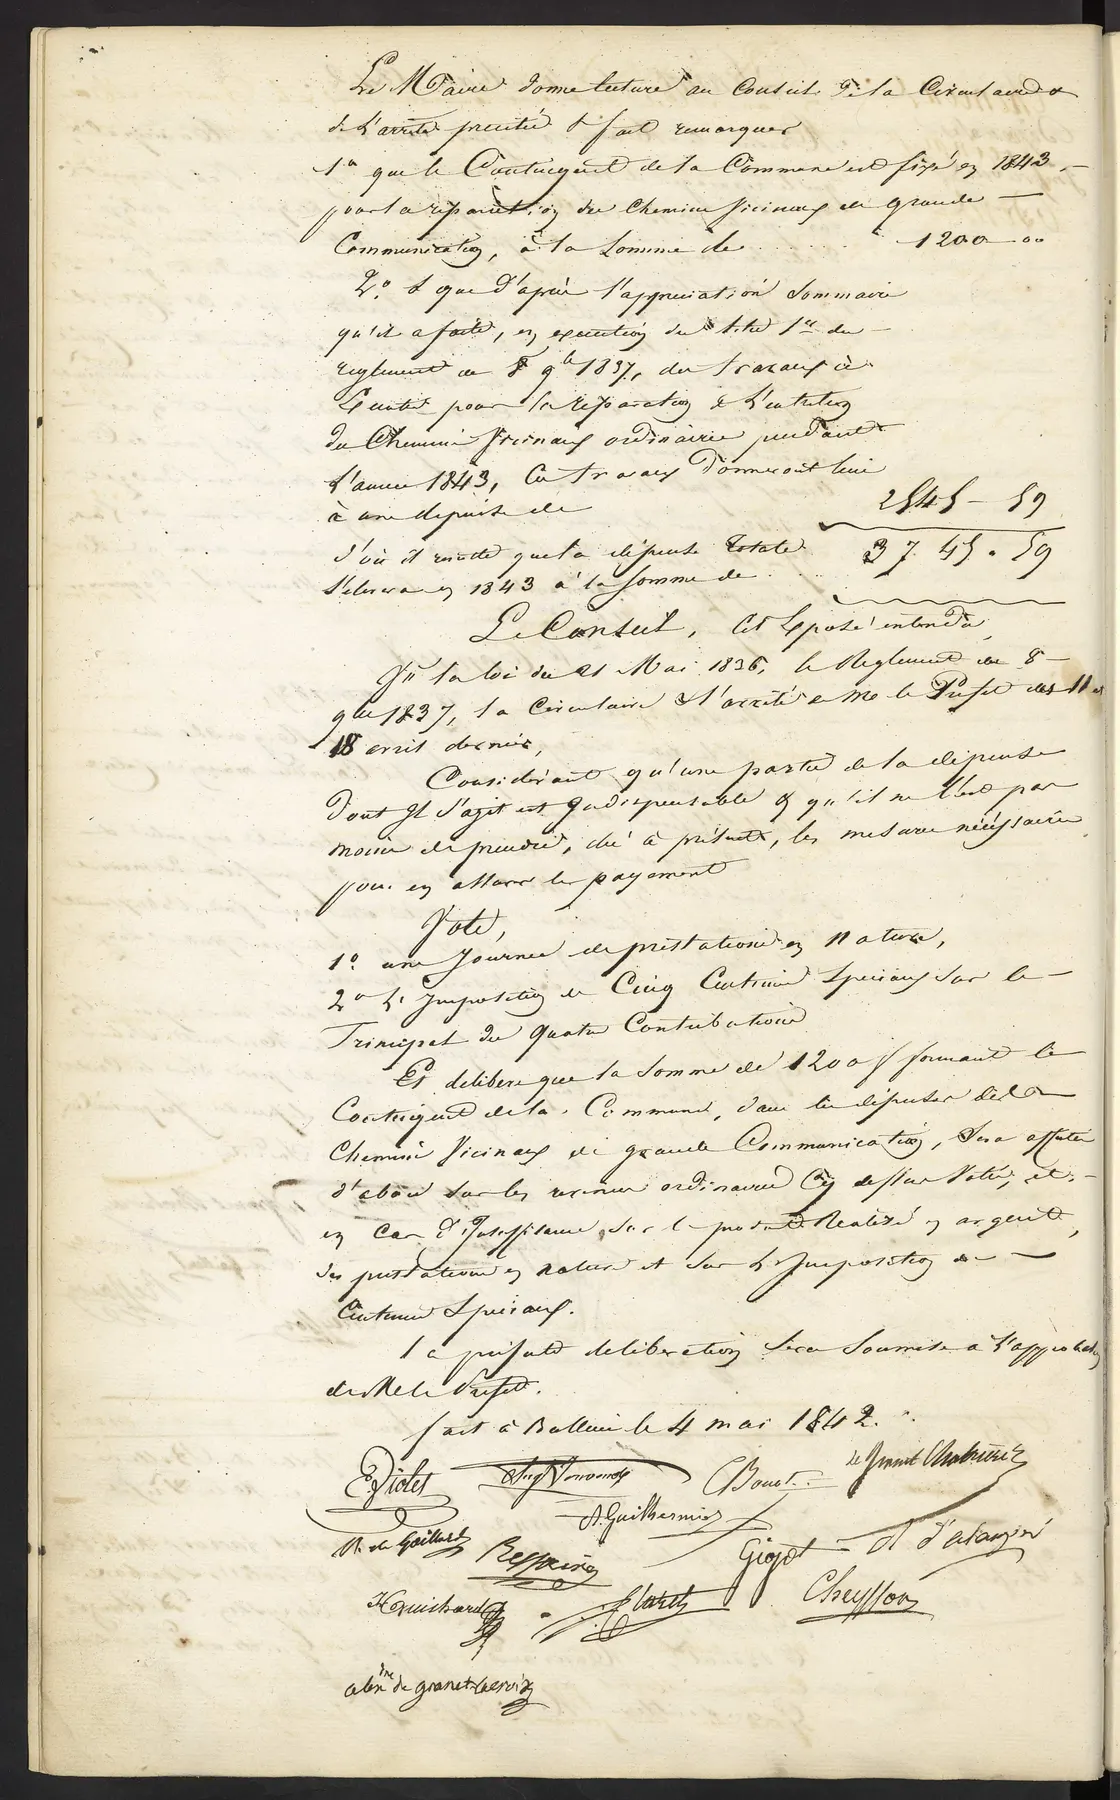 Le Maire donne lecture au Conseil de la Circulaire &
de l'arrêté précité & fait remarquer
1o que le Contingent de la Commune est fixé en 1843
pour la réparation des chemins vicinaux de grande
Communication, à la somme de 1200 00
2o & que d'après l'appréciation sommaire
qu'il a faite, en exécution du titre 1er du
règlement du 8 9bre 1837, des travaux à
pour la réparation & l'entretien
des Chemins vicinaux ordinaires pendant
l'année 1843, Ces travaux donneront lieu
à une dépense de 2545 - 59
d'où il résulte que la dépense totale
s'élèvera en 1843 à la somme de 3745 . 59
Le Conseil, Cet Exposé entendu
Vu la loi du 21 Mai 1836, le Règlement du 8
9bre 1837, la Circulaire & l'arrêté de Mr le Préfet des 11 et
18 avril dernier,
Considérant qu'une partie de la dépense
Dont Il s'agit est Indispensable & qu'il ne l'est pas
moins de prendre, dès à présent, les mesures nécessaires
pour en assurer le payement
Vote,
1o une Journée de prestations en Nature,
2o L'Imposition de Cinq Centimes Spéciaux Sur le
Principal des Quatre Contributions
Et délibère que la Somme de 1200 f formant le
Contingent de la Commune, dans les dépenses des
Chemins Vicinaux de grande Communication, Sera affectée
d'abord sur les revenus ordinaires Cy dessus Votés, et
en Cas d'Insuffisance, Sur le produit Réalisé en argent,
des prestations en nature et Sur L'Imposition de
Centimes Spéciaux.
la présente délibération Sera Soumise à l'approbation
de Mr le Préfet.
fait à Bollène le 4 mai 1842.
E Violet Bonot de Granet
A. Guilhermier
de Gaillard Gigot
H Guichard Cheysson
de granet lacroix